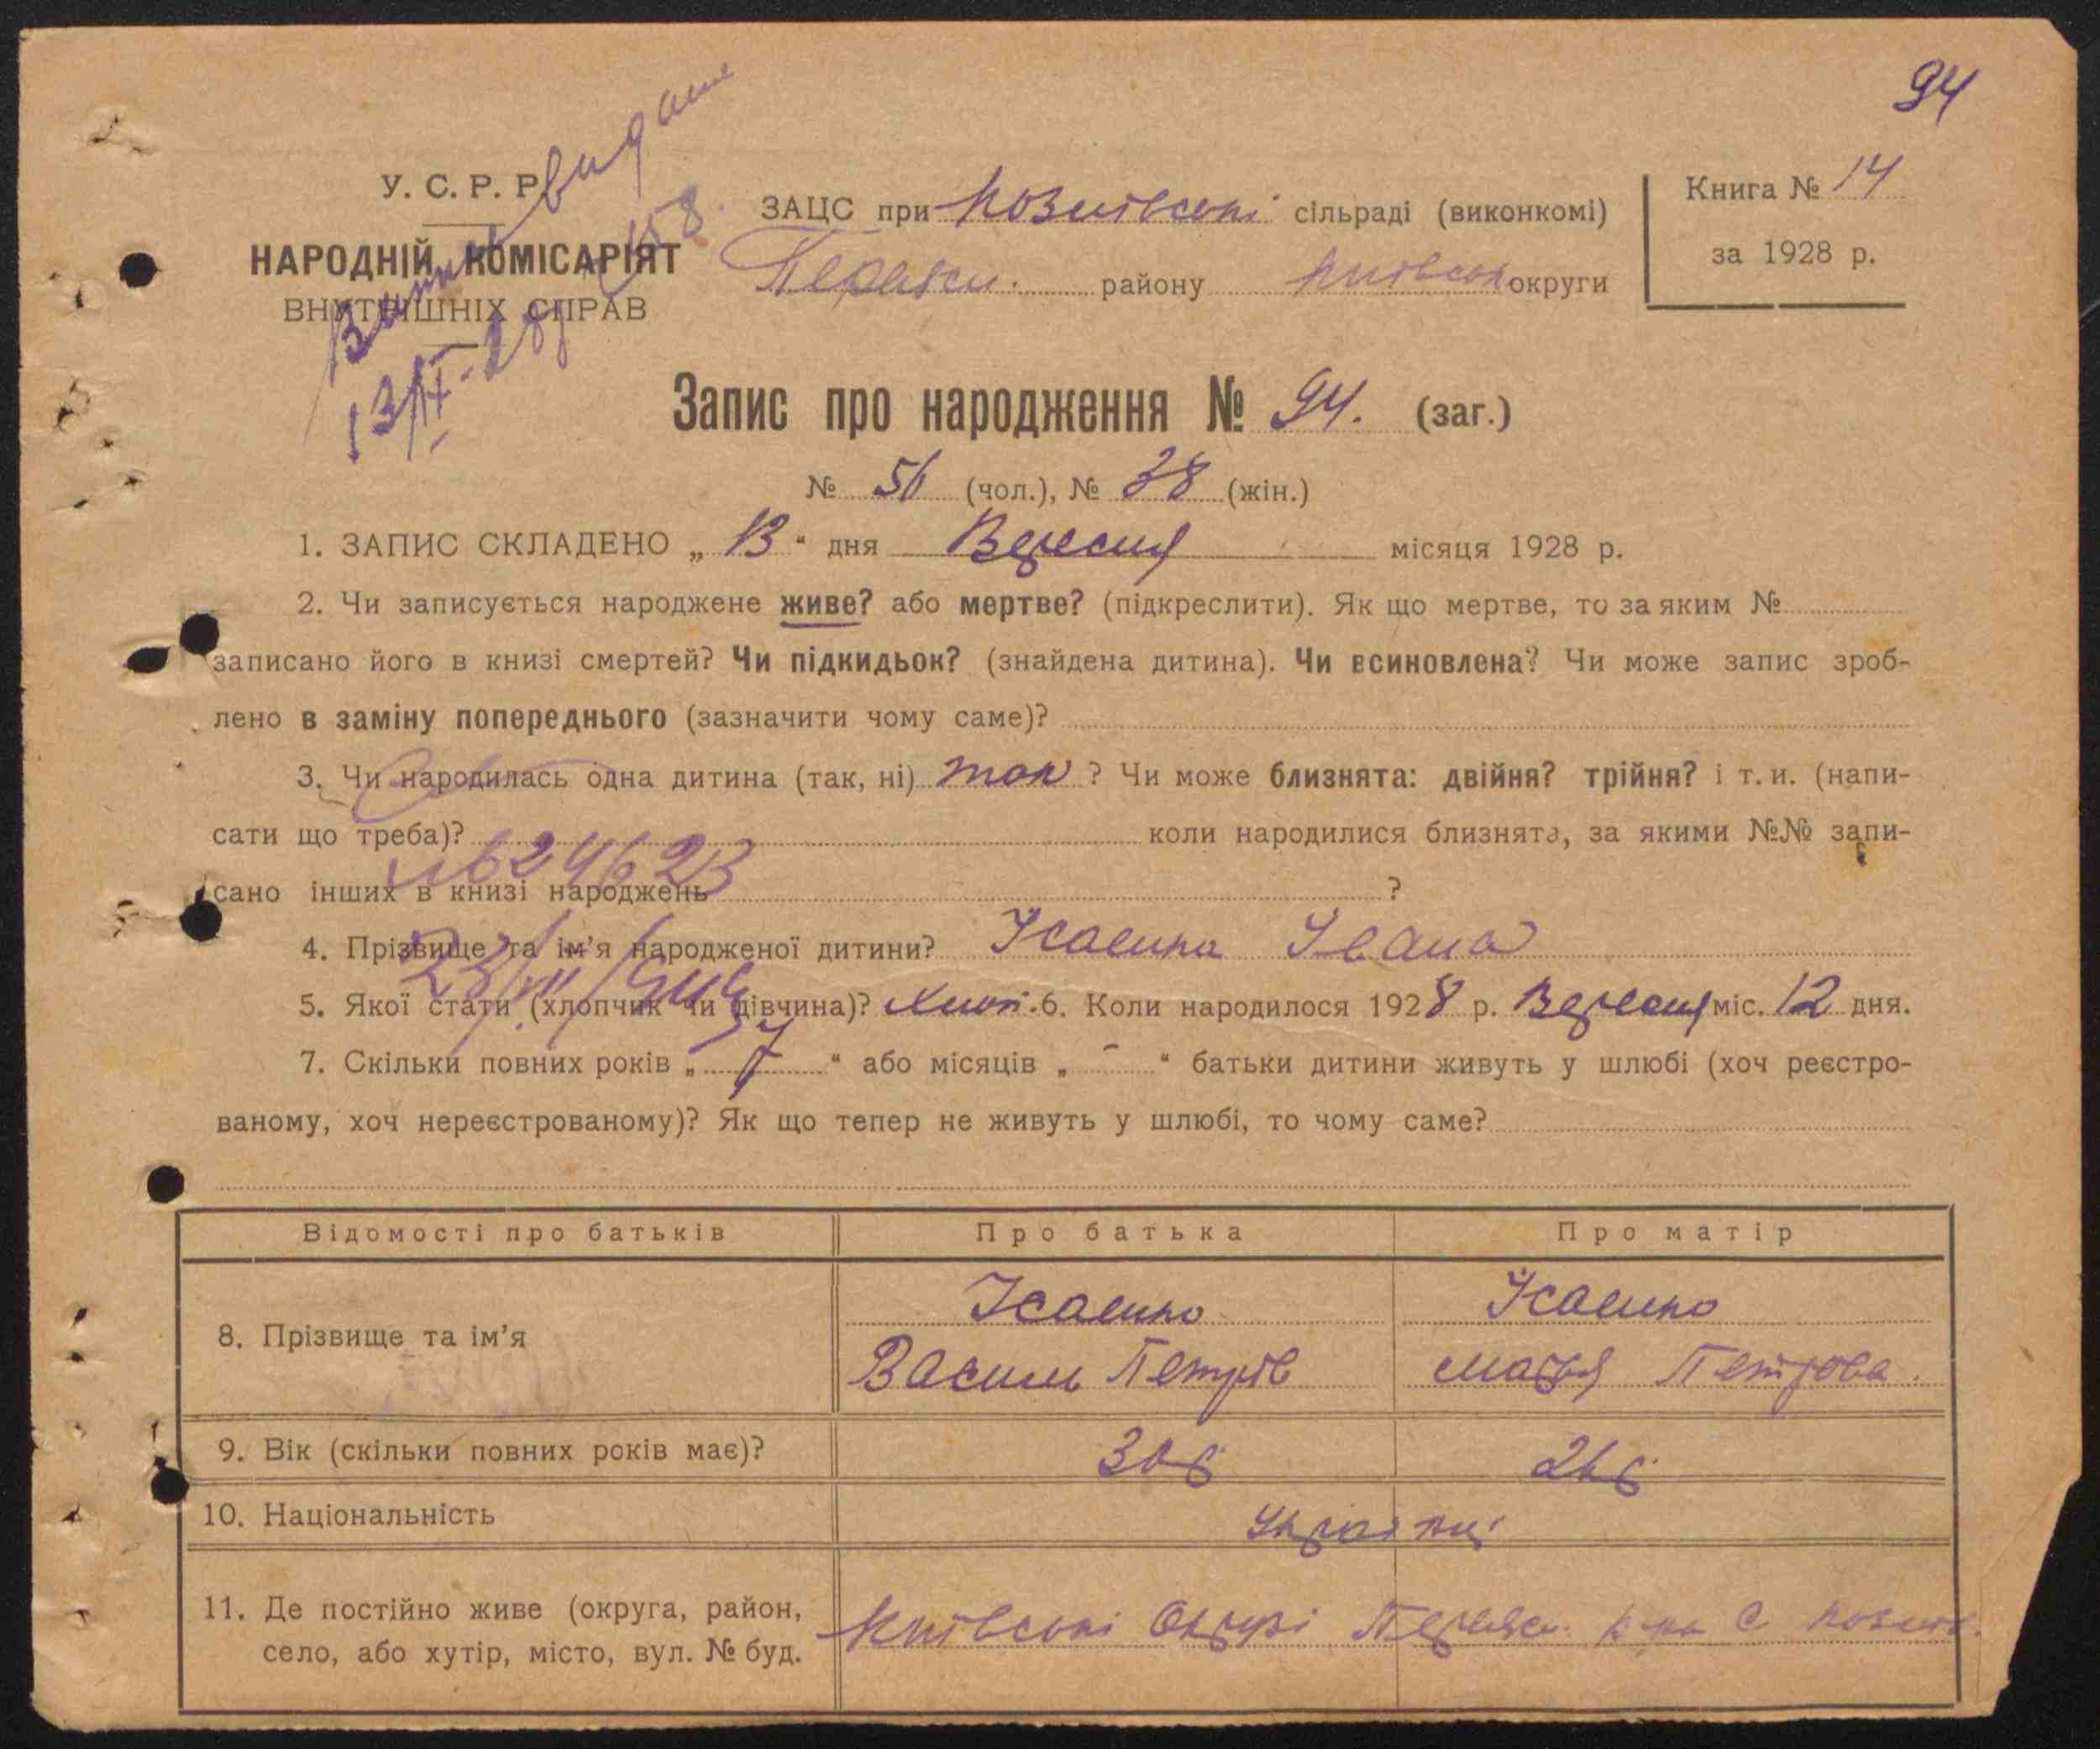 94
У. С. Р. Р.
НАРОДНІЙ КОМІСАРІЯТ
ВНУТРІШНІХ СПРАВ
видано
13/IX-28
ЗАЦС при сільраді (виконкомі)
Переяс. району Київськ округи
Книга № 14
за 1928 р.
Запис про народження № 94. (заг.)
№ 56 (чол.), № 38 (жін.)
1. ЗАПИС СКЛАДЕНО „ 13 “ дня Вересня місяця 1928 р.
2. Чи записується народжене живе? або мертве? (підкреслити). Як що мертве, то за яким №
записано його в книзі смертей? Чи підкидьок? (знайдена дитина). Чи всиновлена? Чи може запис зроб-
лено в заміну попереднього (зазначити чому саме)?
3. Чи народилась одна дитина (так, ні) так ? Чи може близнята: двійня? трійня? і т. и. (напи-
сати що треба)? коли народилися близнята, за якими №№ запи-
624623
сано інших в книзі народжень ?
4. Прізвище та ім’я народженої дитини? Ісаєнка Івана
5. Якої стати (хлопчик чи дівчина)? Хлоп. 6. Коли народилося 1928 р. Вересня міс. 12 дня.
7. Скільки повних років „ 7 “ або місяців „ - “ батьки дитини живуть у шлюбі (хоч реєстро-
ваному, хоч нереєстрованому)? Як що тепер не живуть у шлюбі, то чому саме?
Відомості про батьків Про батька Про матір
8. Прізвище та ім’я Ісаєнко Ісаєнко
Василь Петрів Марія Петрова
9. Вік (скільки повних років має)?
10. Національність Українці
11. Де постійно живе (округа, район, Київські Окрузі Переяс. р-на С
село, або хутір, місто, вул. № буд.